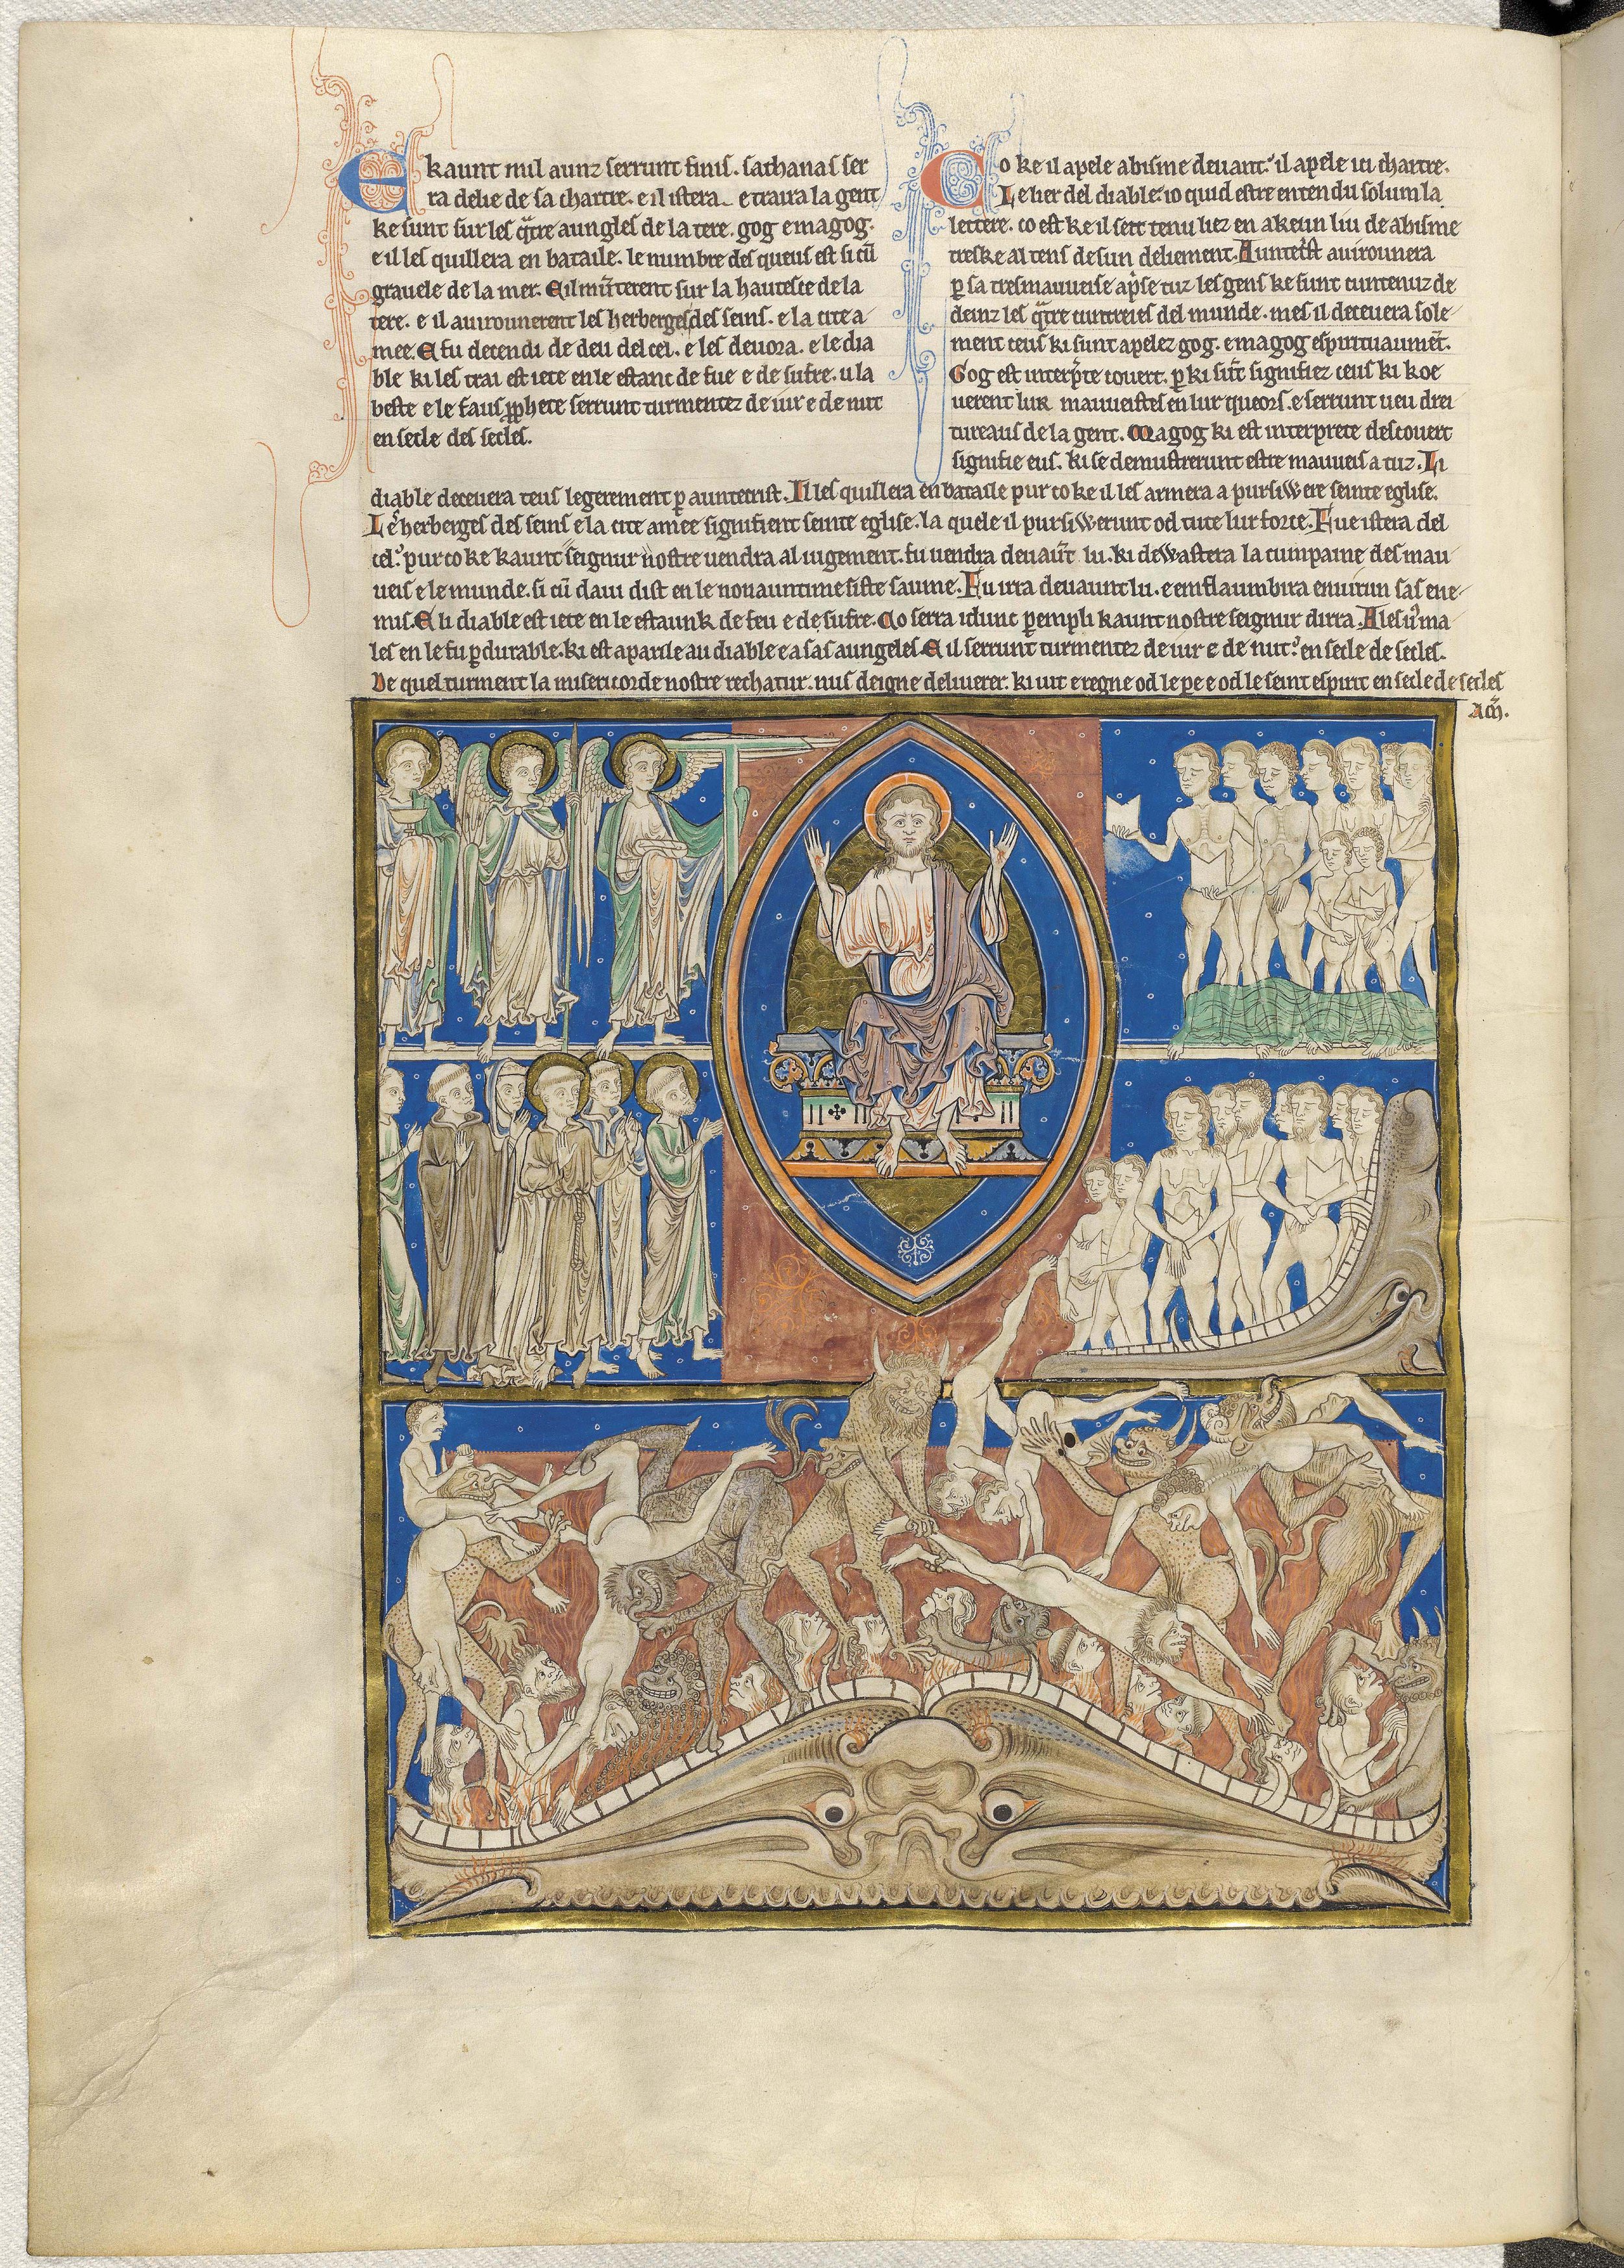 E kaunt mil aunz serrunt finis. sathanas ser
ra delie de sa chartre. e il istera. e traira la gent
ke sunt sur les q̃tre aungles de la tere. gog e magog.
e il les quillera en bataile. le numbre des queus est si cũ
gravele de la mer. E il mũterent sur la hauteste de la
tere. e il avirounerent les herberges des seins. e la cite a
mee. E fu decendi de deu del cel. e les devora. e le dia
ble ki les trai est iete en le estanc de fue e de sufre. u la
beste e le faus ꝓphete serrunt turmentez de iur e de nut
en secle des secles.
Co ke il apele abisme devant. il apele ici chartre.
Le lier del diable. co quid estre entendu solum la
lettere. co est ke il sert tenu liez en akeun liu de abisme
treske al tens de sun deliement. Auntec̃st avirounera
ꝑ sa tresmauveise ap̃se tuz les gens ke sunt cuntenuz de
deinz les q̃tre cuntreies del munde. mes il decevera sole
ment ceus ki sunt apelez gog. e magog espirituaumẽt.
Gog est interp̃te covert. ꝑ ki sũt signifiez ceus ki koe
verent lur mauveistes en lur queors. e serrunt veu drei
tureaus de la gent. Magog ki est interprete descovert
signifie eus. ki se demustrerunt estre mauveis a tuz. Li
diable decevera teus legerement ꝑ auntecrist. Il les quillera en bataile pur co ke il les armera a pursiwere seinte eglise.
Les herberges des seins e la cite amee signifient seinte eglise. la quele il pursiwerunt od tute lur force. Fue istera del
cel. pur co ke kaunt seignur nostre vendra al iugement. fu vendra devaũt lu. ki dewastera la cumpaine des mau
veis e le munde. si cũ davi dist en le nonauntime siste saume. Fu irra devaunt lu. e enflaumbira envirun sas ene
mis. E li diable est iete en le estaunk de feu e de sufre. Co serra idunc ꝑempli kaunt nostre seignur dirra. Alez uꝰ ma
les en le fu ꝑdurable. ki est aparile au diable e a sas aungeles. E il serrunt turmentez de iur e de nut. en secle de secles.
De quel turment la misericorde nostre rechatur. nus deigne deliverer. ki vit e regne od le pere e od le seint espirit en secle de secles
Am̃.